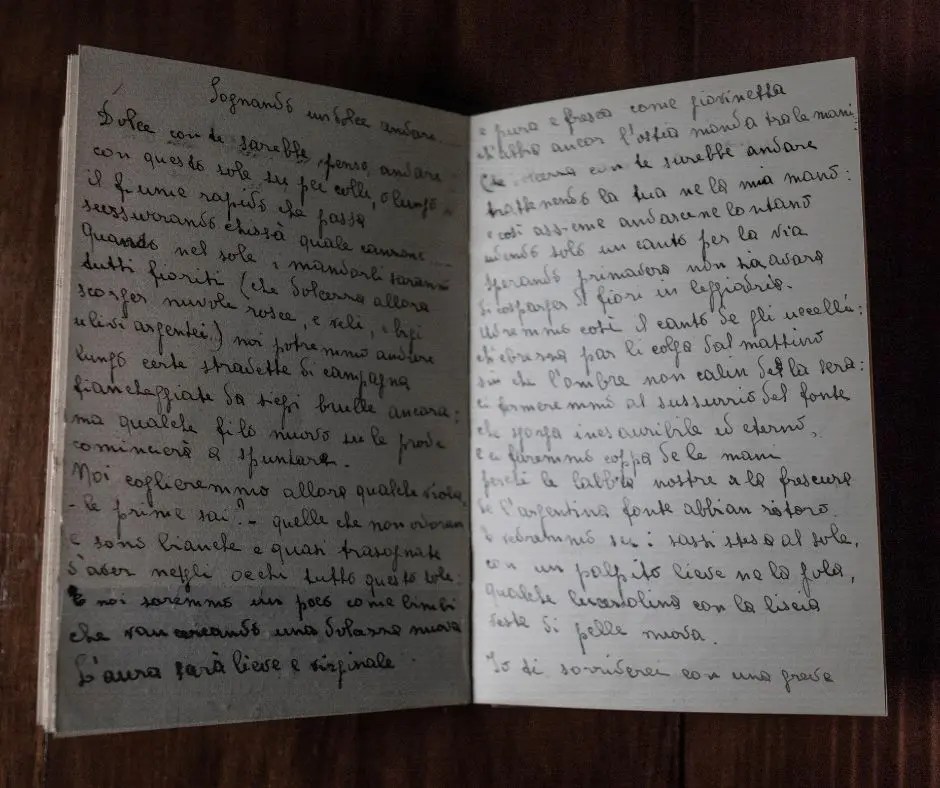 Sognando un dolce andare....
Dolce con te sarebbe, penso, andare
con questo sole su pei colli, o lungo
il fiume rapido che passa
sussurrando chissà quale canzone....
Quando nel sole i mandorli saranno
tutti fioriti (che dolcezza allora
scorger nuvole rosee, e veli, e bigi
ulivi argentei!) noi potremmo andare
lungo certe stradette di campagna
fiancheggiate da siepi brulle ancora;
ma qualche filo nuovo su le prode
comincerà a spuntare.
Noi coglieremmo allora qualche viola,
- le prime sai? - quelle che non odoran
e sono bianche e quasi trasognate
d'aver negli occhi tutto questo sole:
E noi saremmo un poco come bimbi
che van cercando una dolcezza nuova
L'aura sarà lieve e virginale
e pura e fresca come giovinetta
ch'abbia ancor l'ostia monda tra le mani.
Che cara con te sarebbe andare
trattenendo la tua ne la mia mano:
e così assieme andarcene lontano
udendo solo un canto per la via
sperando primavera non sia avara
di cosparger di fiori in leggiadria.
Udremmo così il canto de gli uccelli:
ch'ebrezza par li colga dal mattino
sin che l'ombre non calin de la sera:
ci fermeremmo al sussurrio del fonte
che sgorga inesauribile ed eterno,
e ci faremmo coppa de le mani
perché le labbra nostre a la frescura
de l'argentina fonte abbian ristoro.
E vedremmo su i sassi stesa al sole,
con un palpito lieve ne la gola,
qualche lucertolina con la liscia
veste di pelle nuova.
Io ti sorriderei con una grave